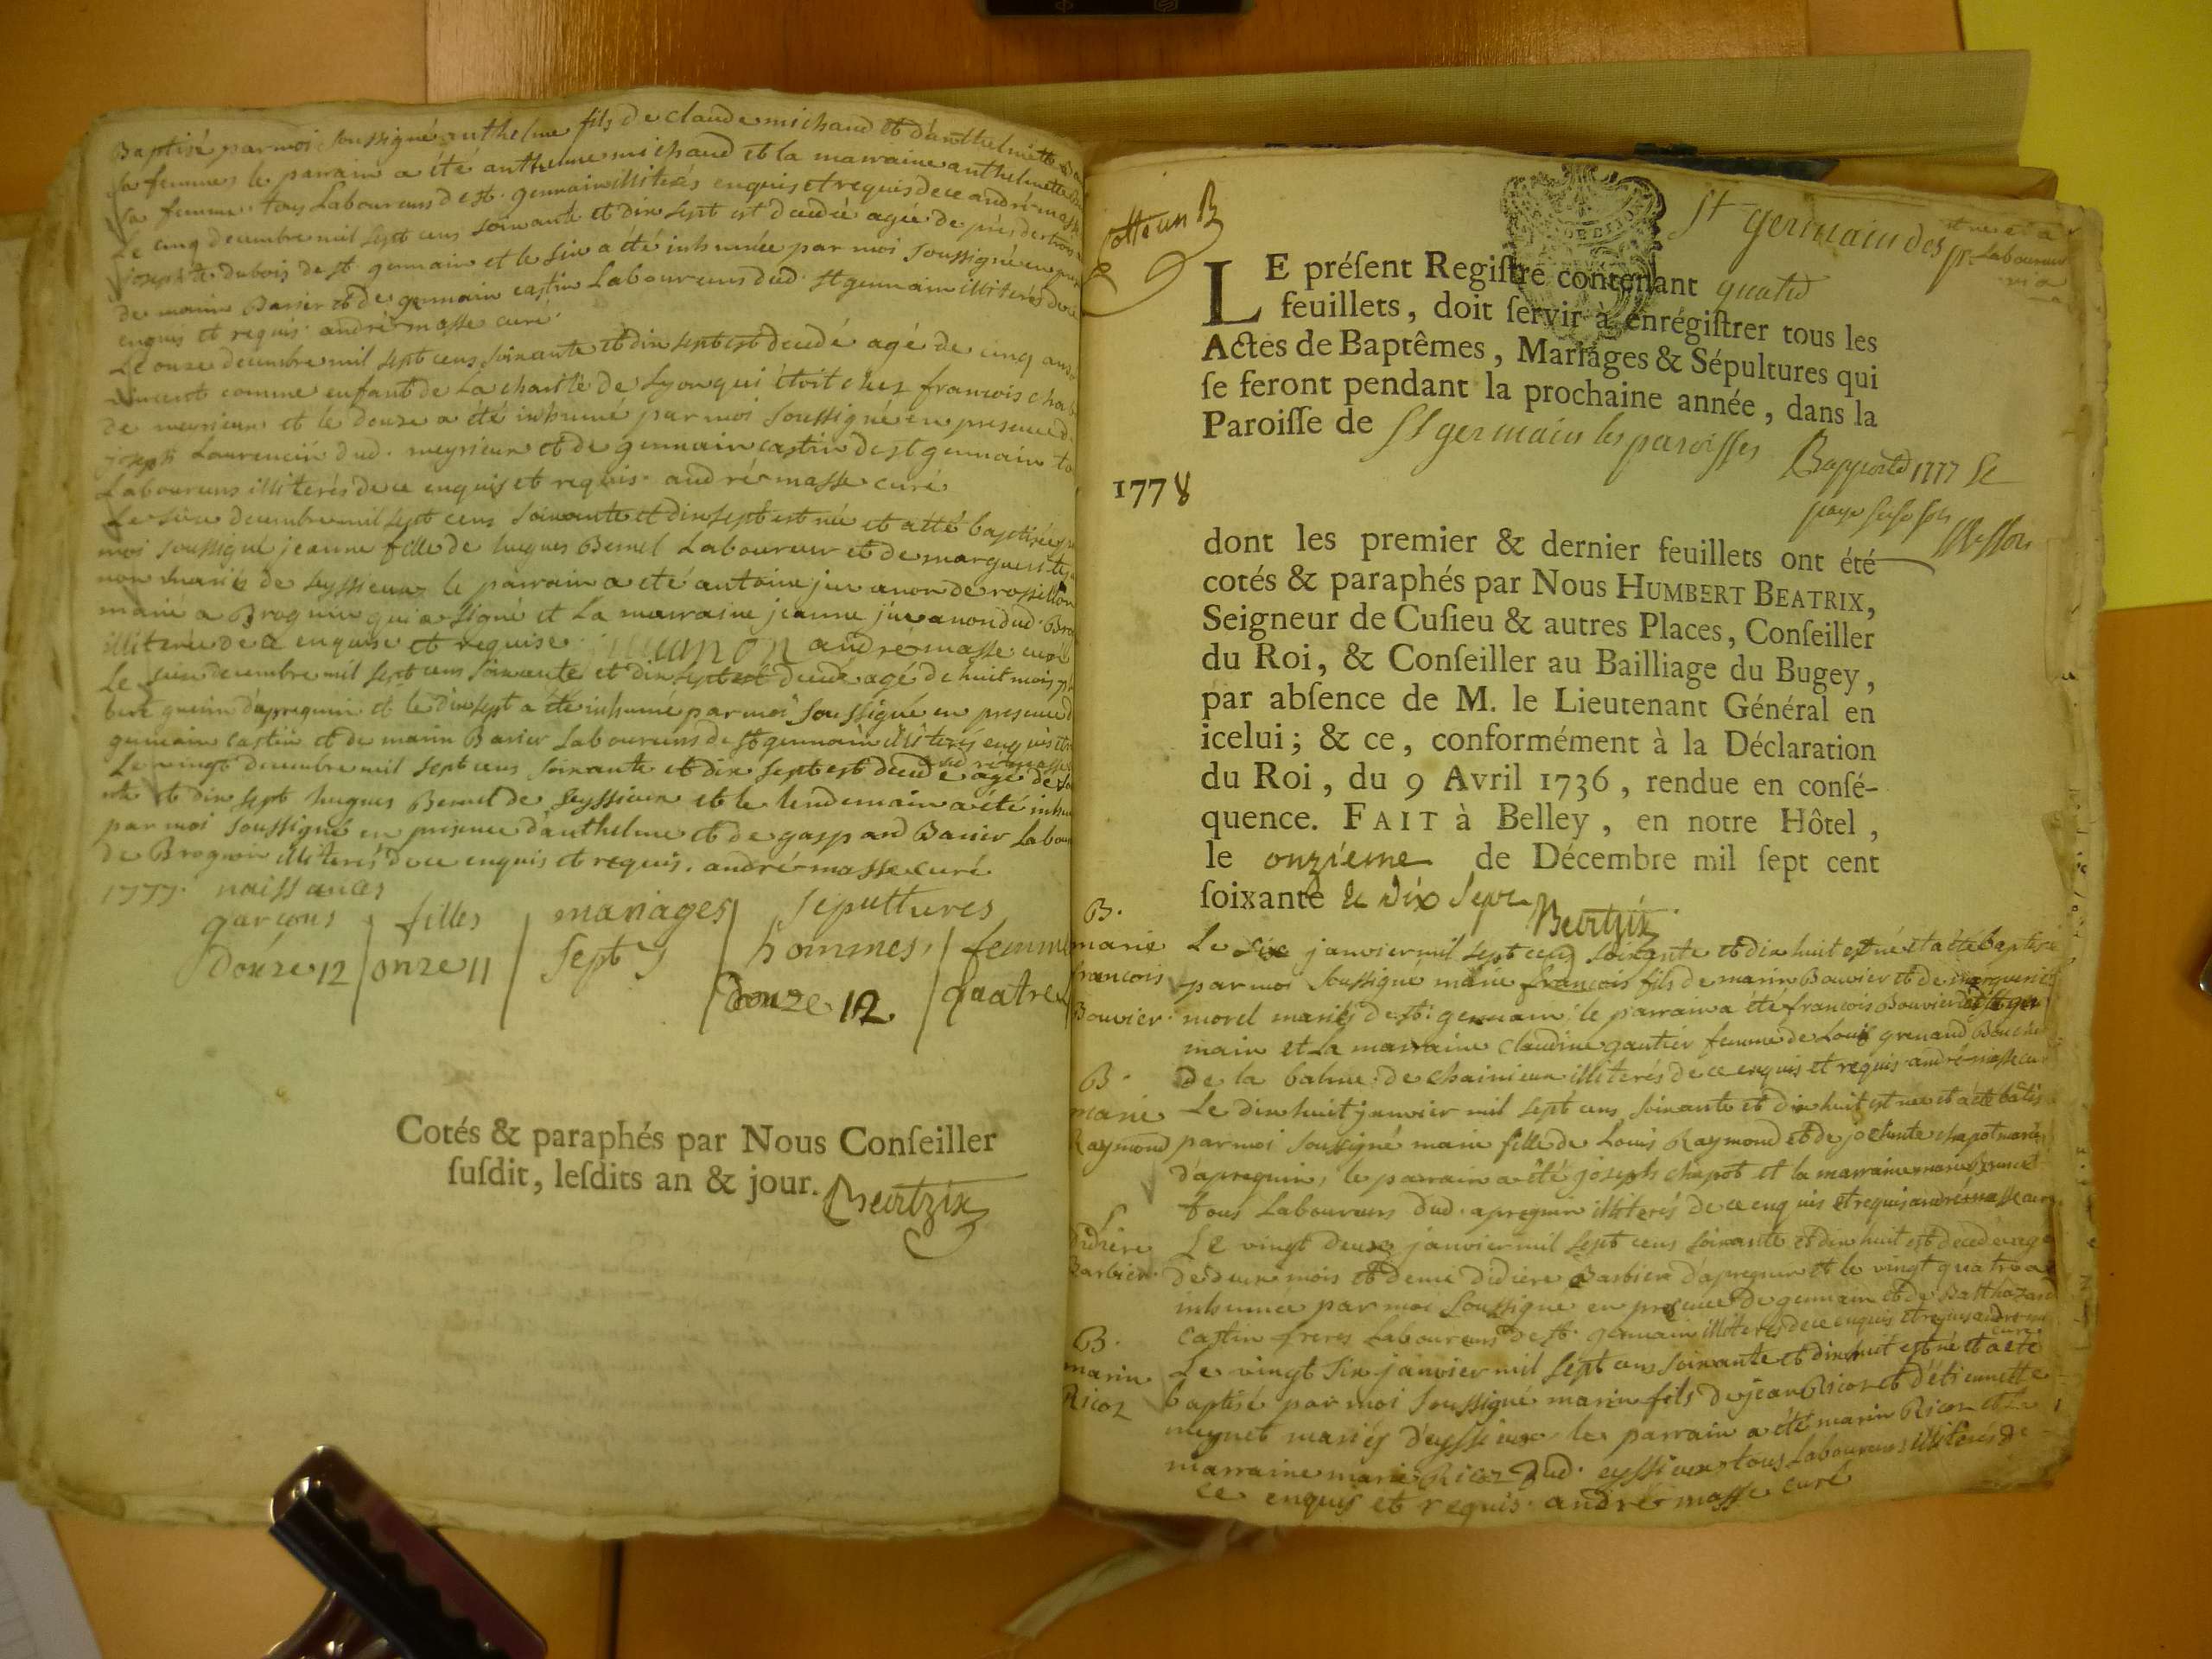 Baptisé par moi soussigné anthelme fils de claude michaud et d'anthelmette
sa femme, le parrain a été anthelme michaud et la marraine anthelmette
sa femme tous Laboureurs de st. germain illiterés enquis et requis de ce andré masse
Le cinq decembre mil sept cens soixante et dix sept est decedée agée de près de trois
josephte dubois de st germain et le six a été inhumée par moi soussigné en
de marin Barier et de germain castin Laboureurs dud. st germain illiterés de ce
enquis et requis andré masse curé
Le onze decembre mil sept cens soixante et dix sept est decedé agé de cinq ans
vincent comme enfant de La charité de Lyon qui étoit chez francois
de meyrieu et le douze a été inhumé par moi soussigné en presence d
joseph Laurencin dud. meyrieu et de germain castin de st germain
Laboureurs illiterés de ce enquis et requis. andré masse curé
Le decembre mil sept cens soixante et dix sept est née et a été baptisée
moi soussigné jeanne fille de hugues Bernel Laboureur et de marguerite
mariés de seyssieux le parrain a été antoine juvanon de rossillon
marié a Brognin qui a signé et La marraine jeanne juvanon dud.
illiterée de ce enquise et requise juvanon andré masse curé
Le seize decembre mil sept cens soixante et dix sept est decedé agé de huit mois
d'apregnin et le dix sept a été inhumé par moi soussigné en presence d
germain castin et de marin Barier Laboureurs de st germain illiterés enquis et
andré masse
Le vingt decembre mil sept cens soixante et dix sept est decedé agé de
et dix sept hugues Bernel de seyssieux et le lendemain a été
par moi soussigné en presence d'anthelme et de gaspard Barier
de Brognin illiterés de ce enquis et requis. andré masse curé
1777. naissances
garçons filles mariages sépultures
hommes,
douze 12 onze 11 sept 7
douze 12. quatre
Cotés & paraphés par Nous Conſeiller
ſuſdit, leſdits an & jour. Beatrix
St germain des
LE préſent Regiſtre contenant quatre
feuillets, doit ſervir à enrégiſtrer tous les
Actes de Baptêmes, Mariages & Sépultures qui
ſe feront pendant la prochaine année, dans la
Paroiſſe de St germain les paroisses
1778
dont les premier & dernier feuillets ont été
cotés & paraphés par Nous HUMBERT BEATRIX,
Seigneur de Cuſieu & autres Places, Conſeiller
du Roi, & Conſeiller au Bailliage du Bugey,
par abſence de M. le Lieutenant Général en
icelui; & ce, conformément à la Déclaration
du Roi, du 9 Avril 1736, rendue en conſé-
quence. FAIT à Belley, en notre Hôtel,
le onzieme de Décembre mil ſept cent
ſoixante & dix sept Beatrix
B.
marie
francois
Bouvier.
Le six janvier mil sept cens soixante et dix huit est né et a été baptisé
par moi soussigné marie francois fils de marin Bouvier et de marguerite
morel mariés de st. germain; le parrain a été francois Bouvier de st ger
main et la marraine claudine gautier femme de Louis grenaud
de la balme de chainieux illiterés de ce enquis et requis andré masse curé
B.
marie
Raymond
Le dix huit janvier mil sept cens soixante et dix huit est née et a été
par moi soussigné marie fille de Louis Raymond et de chapot mariés
d'apregnin, le parrain a été joseph chapot et la marraine marie
tous Laboureurs dud. apregnin illiterés de ce enquis et requis andré masse curé
S
didiere
Barbier.
Le vingt deux janvier mil sept cens soixante et dix huit est decedée agée
de deux mois et demi didiere Barbier d'apregnin et le vingt quatre a
inhumée par moi soussigné en presence de germain et de Balthazard
castin freres Laboureurs de st. germain illiterés de ce enquis et requis andré masse
curé
B.
marin
Ricoz
Le vingt six janvier mil sept cens soixante et dix huit est né et a été
baptisé par moi soussigné marin fils de jean Ricoz et d'étiennette
meynet mariés d'eyssieux le parrain a été marin Ricoz et la
marraine marie Ricoz dud. eyssieux tous Laboureurs illiterés de
ce enquis et requis. andré masse curé